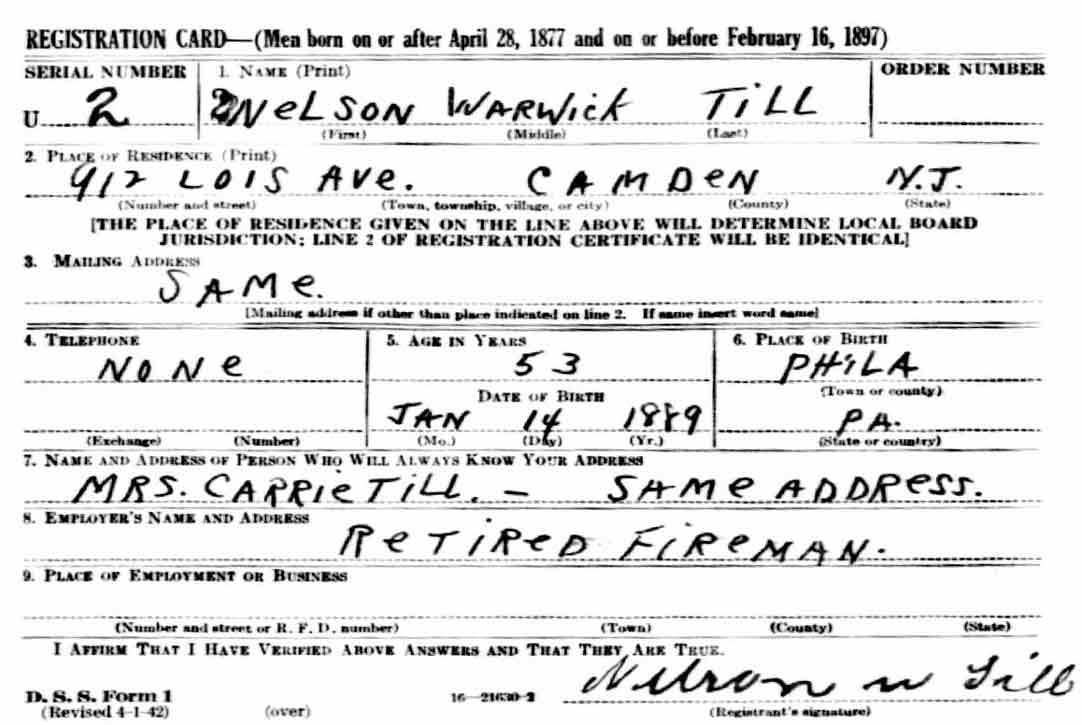 REGISTRATION CARD—(Men born on or after April 28, 1877 and on or before February 16, 1897)
SERIAL NUMBER 1. NAME (Print) ORDER NUMBER
U 2 NeLSON WARWick TiLL
(First) (Middle) (Last)
2. PLACE OF RESIDENCE (Print)
912 LOIS AVe. CAMDeN N.J.
(Number and street) (Town, township, village, or city) (County) (State)
[THE PLACE OF RESIDENCE GIVEN ON THE LINE ABOVE WILL DETERMINE LOCAL BOARD
JURISDICTION; LINE 2 OF REGISTRATION CERTIFICATE WILL BE IDENTICAL]
3. MAILING ADDRESS
SAMe.
[Mailing address if other than place indicated on line 2. If same insert word same]
4. TELEPHONE 5. AGE IN YEARS 6. PLACE OF BIRTH
NONe 53 PHiLA
(Town or county)
DATE OF BIRTH
JAN 14 1889 PA.
(Exchange) (Number) (Mo.) (Day) (Yr.) (State or country)
7. NAME AND ADDRESS OF PERSON WHO WILL ALWAYS KNOW YOUR ADDRESS
MRS. CARRIe TiLL. – SAMe ADDRess.
8. EMPLOYER'S NAME AND ADDRESS
ReTiReD FiReMAN.
9. PLACE OF EMPLOYMENT OR BUSINESS
(Number and street or R. F. D. number) (Town) (County) (State)
I AFFIRM THAT I HAVE VERIFIED ABOVE ANSWERS AND THAT THEY ARE TRUE.
Nelson W Till
D. S. S. Form 1 16—21630-2
(Revised 4-1-42) (over) (Registrant's signature)